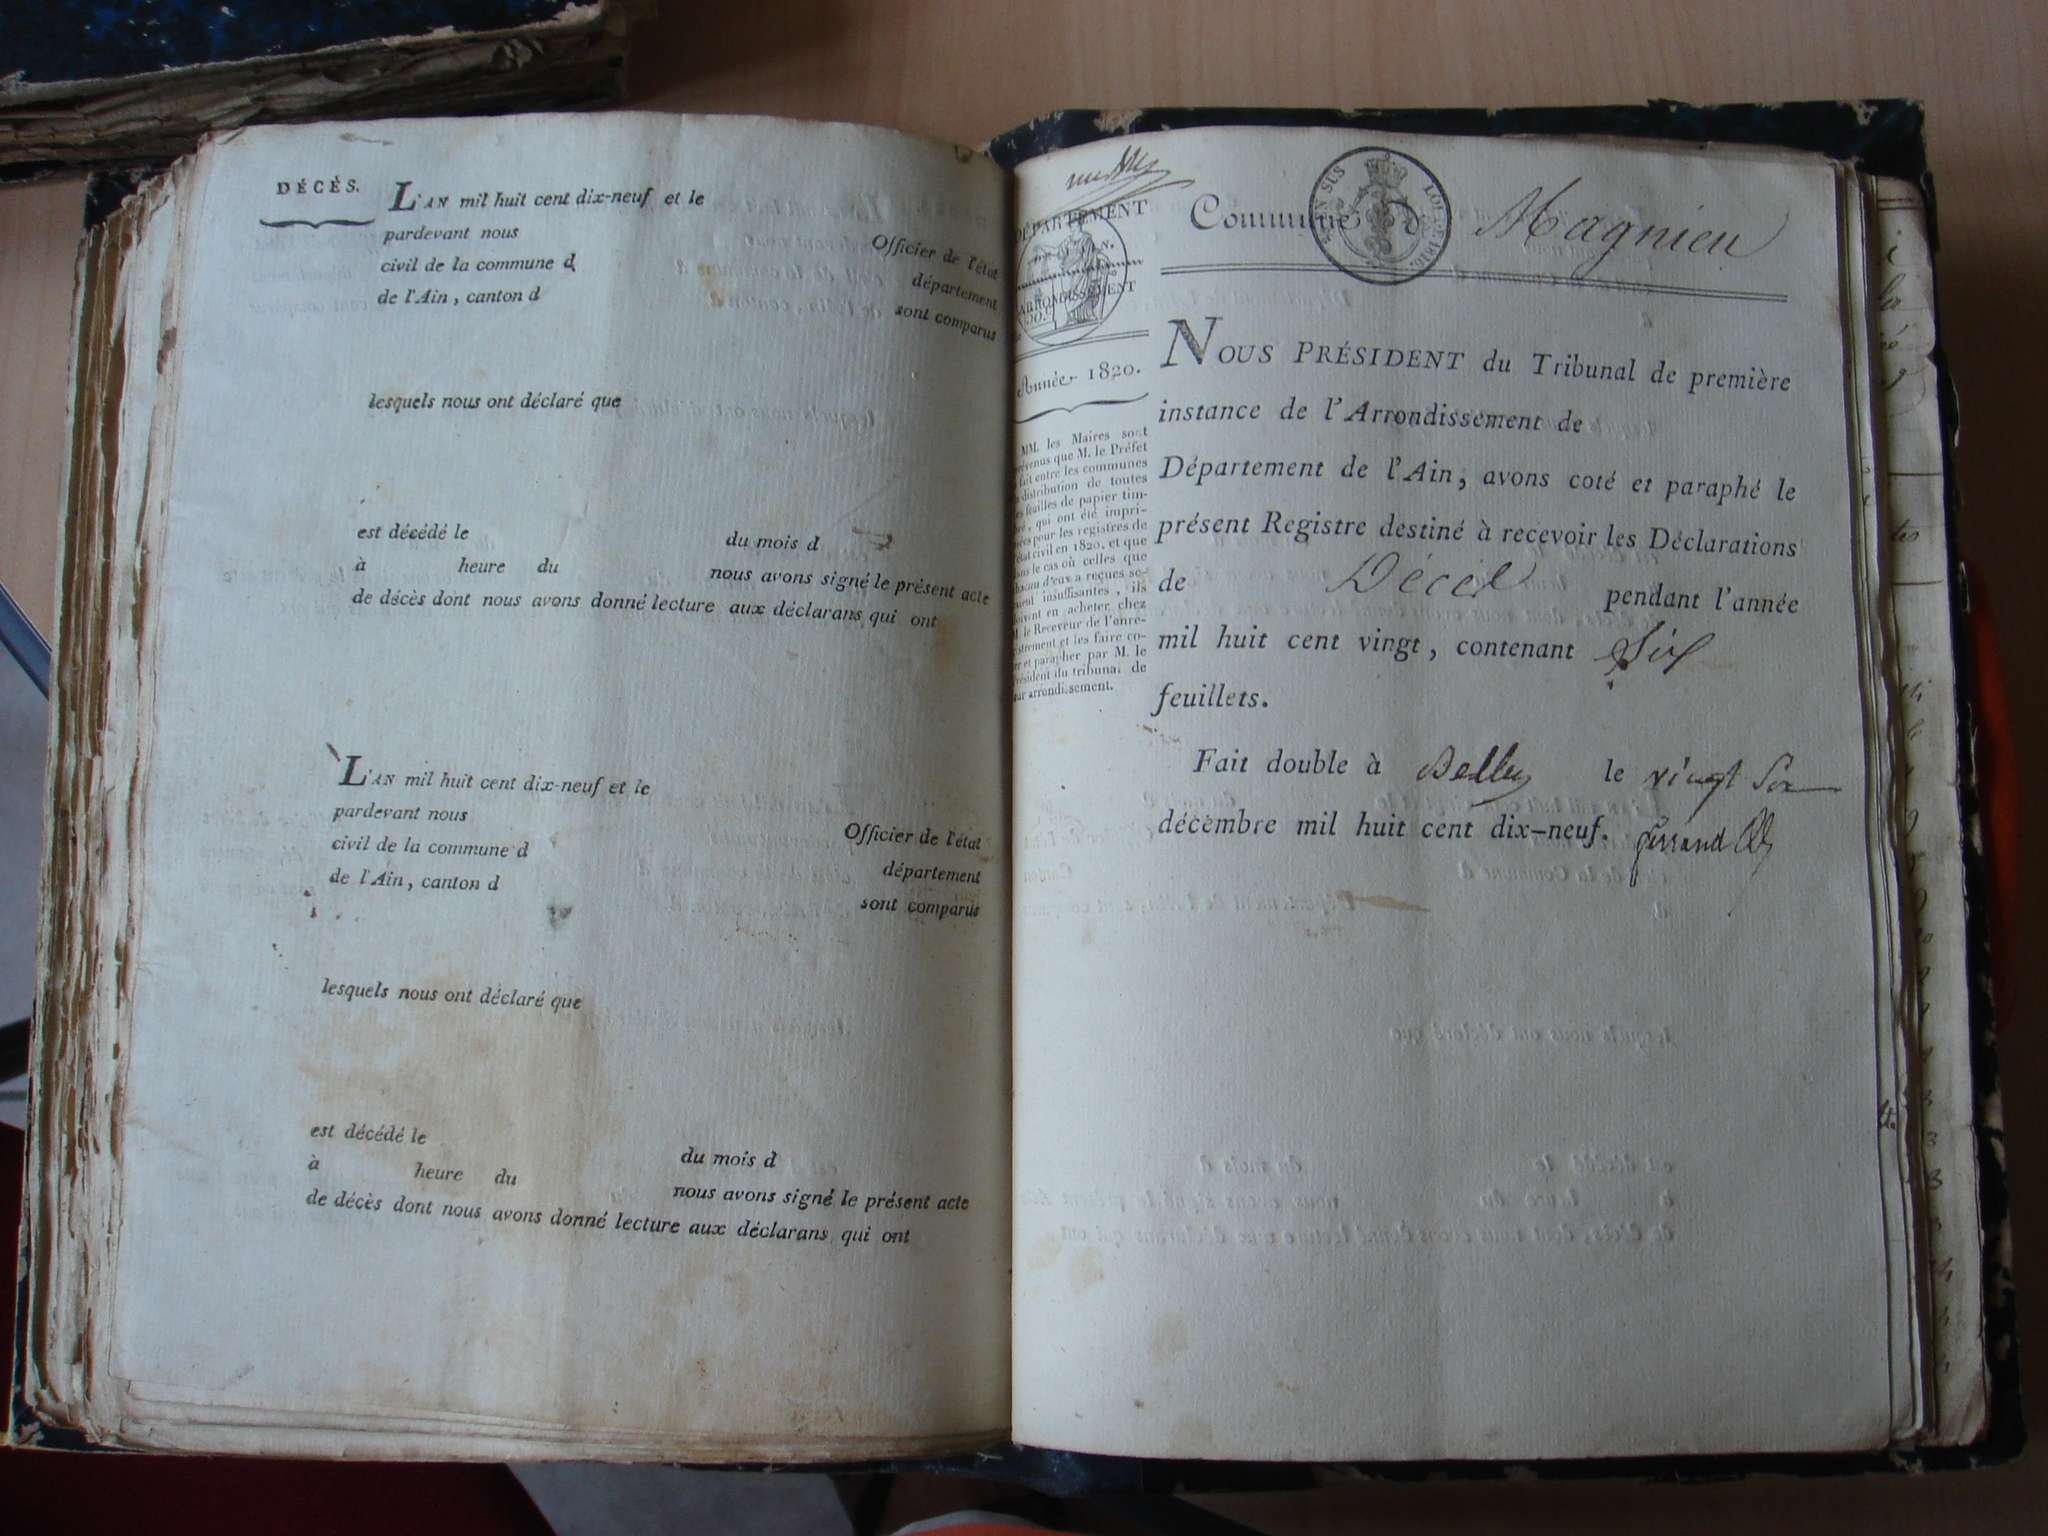 DÉCÈS.
L'AN mil huit cent dix-neuf et le
pardevant nous Officier de l'état
civil de la commune d département
de l'Ain, canton d sont comparus
lesquels nous ont déclaré que
est décédé le du mois d
à heure du nous avons signé le présent acte
de décès dont nous avons donné lecture aux déclarans qui ont
L'AN mil huit cent dix-neuf et le
pardevant nous Officier de l'état
civil de la commune d département
de l'Ain, canton d sont comparus
lesquels nous ont déclaré que
est décédé le du mois d
à heure du nous avons signé le présent acte
de décès dont nous avons donné lecture aux déclarans qui ont
DÉPARTEMENT
ARRONDISSEMENT
Année 1820.
MM. les Maires sont
prévenus que M. le Préfet
a fait entre les communes
la distribution de toutes
les feuilles de papier tim-
bré, qui ont été impri-
mées pour les registres de
l'état civil en 1820, et que
dans le cas où celles que
chacun d'eux a reçues se-
raient insuffisantes, ils
doivent en acheter chez
M. le Receveur de l'enre-
gistrement et les faire co-
ter et parapher par M. le
Président du tribunal de
leur arrondissement.
Commune d Magnieu
EN SUS
LOI DE 1816.
NOUS PRÉSIDENT du Tribunal de première
instance de l'Arrondissement de
Département de l'Ain, avons coté et paraphé le
présent Registre destiné à recevoir les Déclarations
de Décès pendant l'année
mil huit cent vingt, contenant Six
feuillets.
Fait double à Belley le vingt Six
décembre mil huit cent dix-neuf.